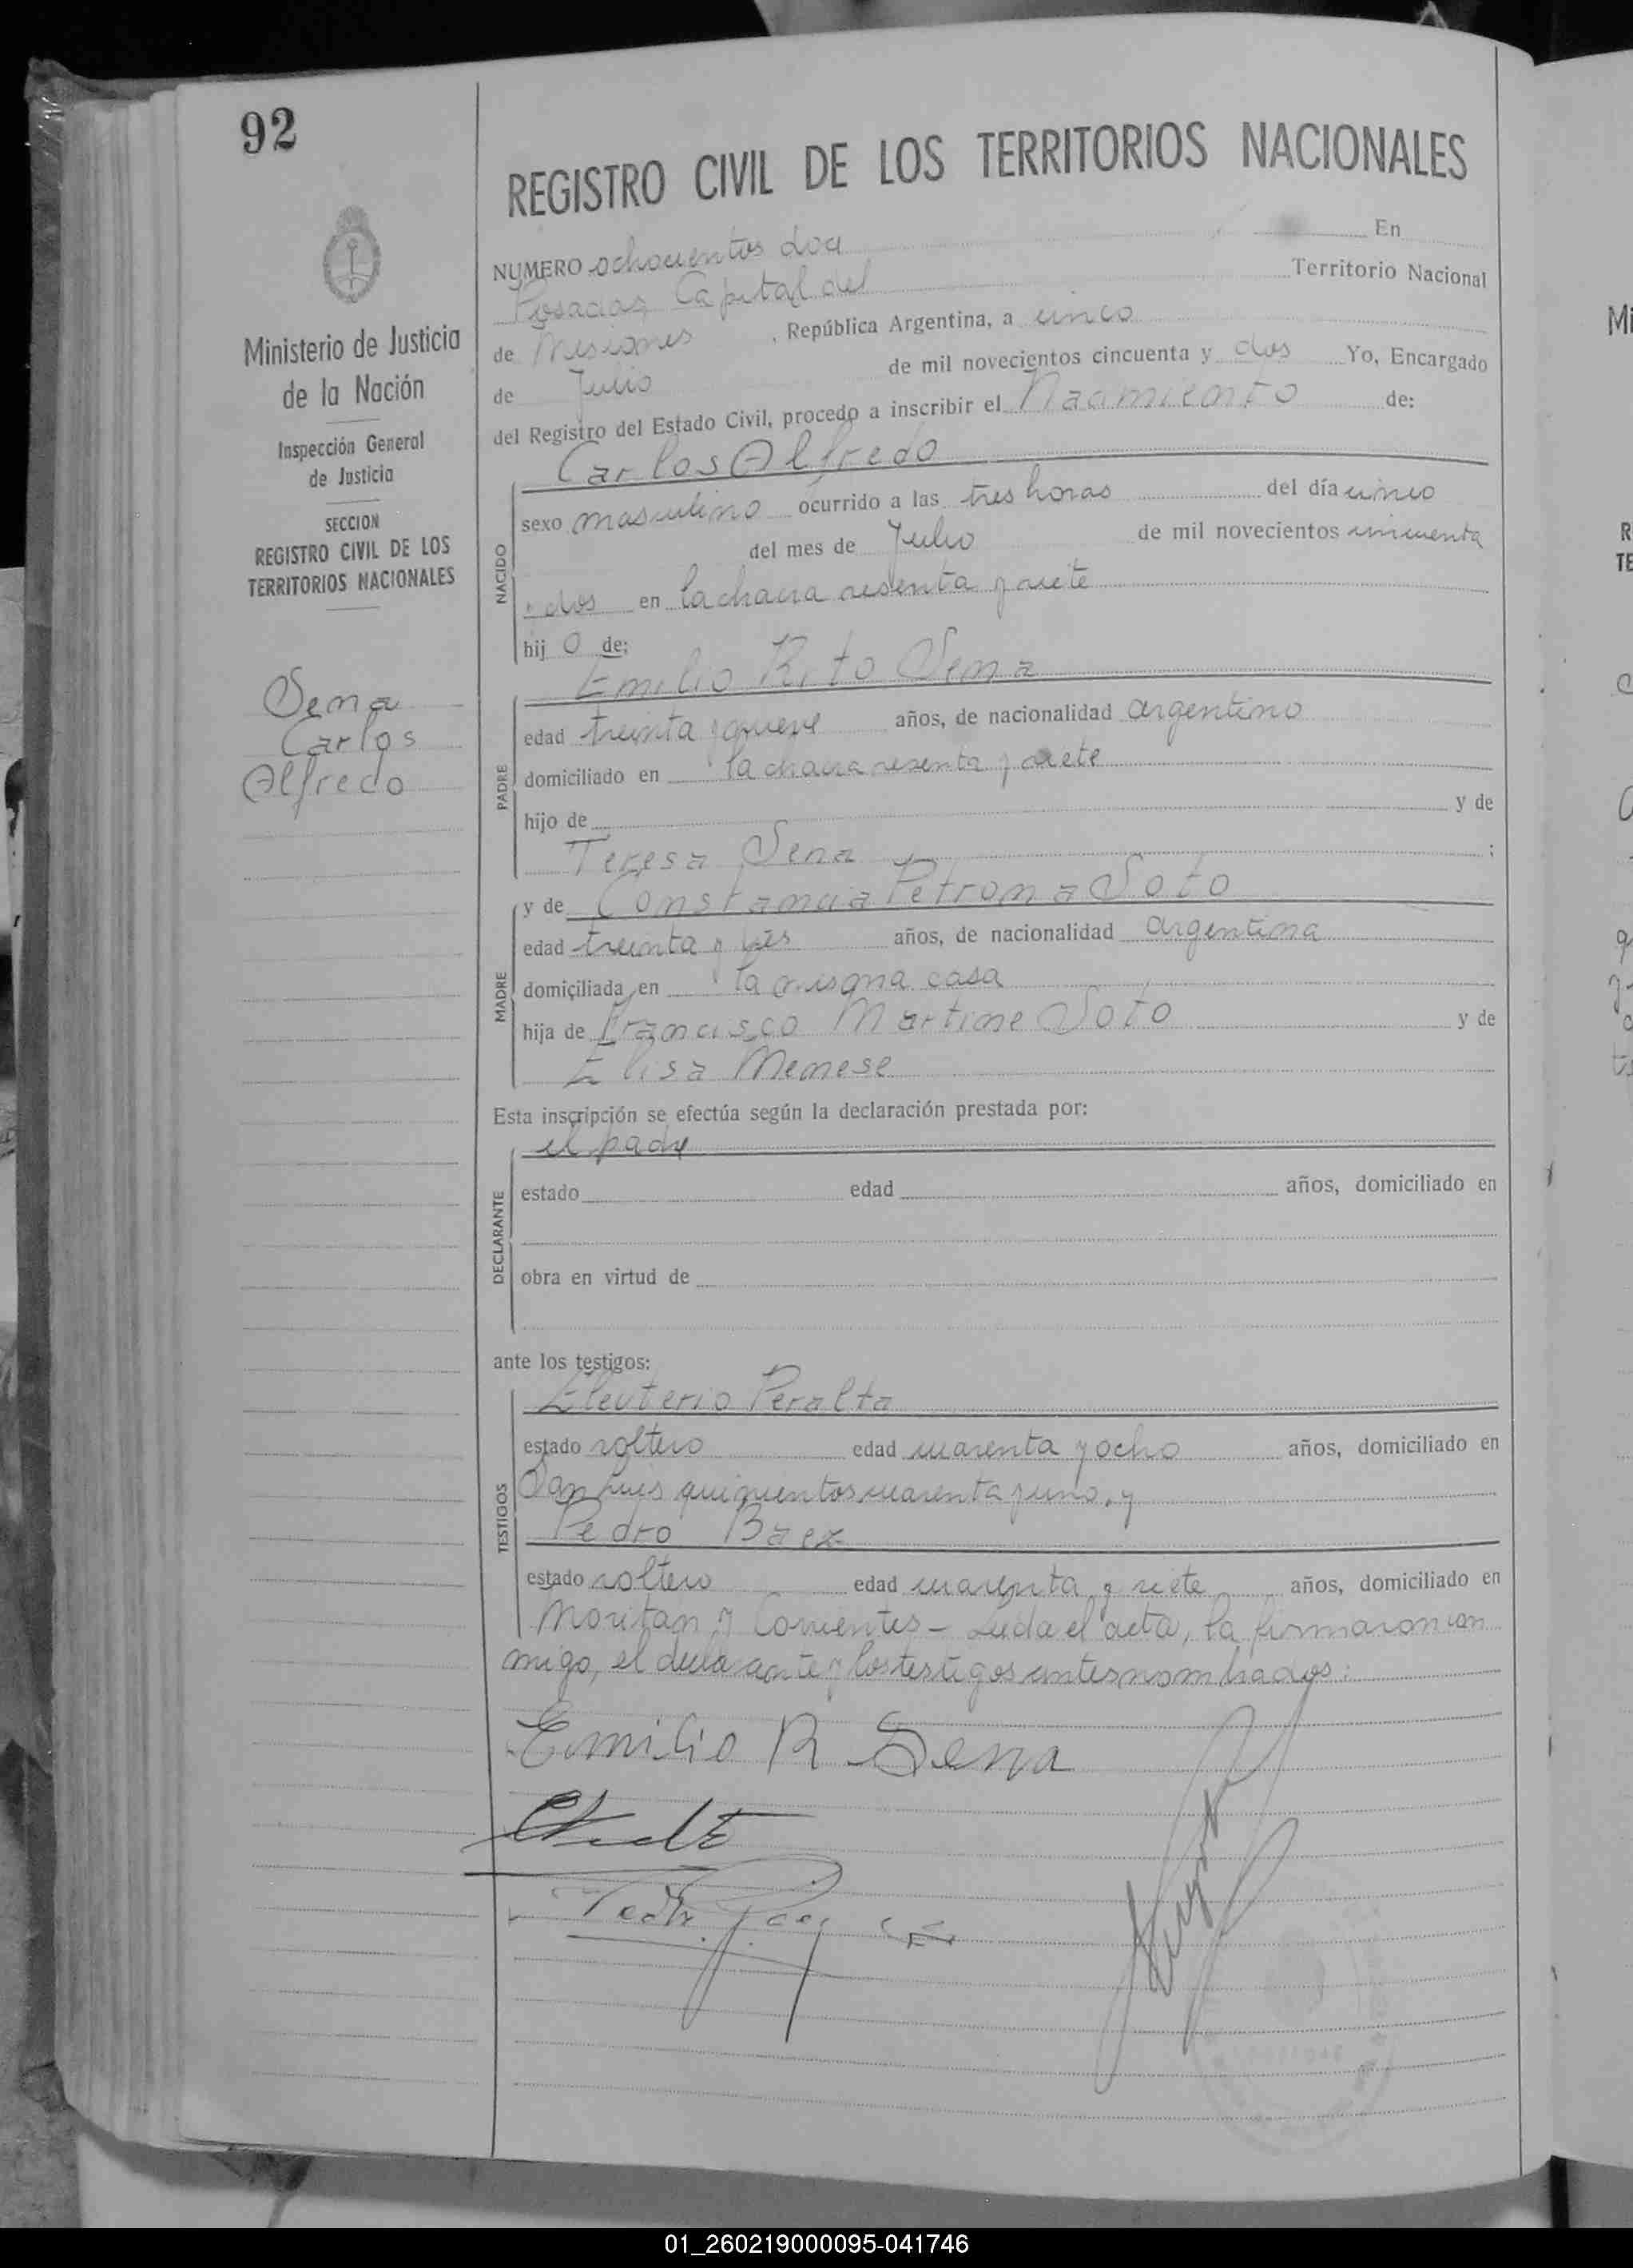 92
Ministerio de Justicia
de la Nación
Inspección General
de Justicia
SECCION
REGISTRO CIVIL DE LOS
TERRITORIOS NACIONALES
Sena
Carlos
Alfredo
REGISTRO CIVIL DE LOS TERRITORIOS NACIONALES
NUMERO ochocientos doce En
Posadas Capital del Territorio Nacional
de Misiones, República Argentina, a cinco
de Julio de mil novecientos cincuenta y dos Yo, Encargado
del Registro del Estado Civil, procedo a inscribir el Nacimiento de:
Carlos Alfredo
NACIDO
sexo masculino ocurrido a las tres horas del día cinco
del mes de Julio de mil novecientos cincuenta
y dos en la chacra sesenta y siete
hijo de:
Emilio Rito Sena
PADRE
edad treinta y nueve años, de nacionalidad argentino
domiciliado en la chacra sesenta y siete
hijo de y de
Teresa Sena ;
y de Constancia Petrona Soto
MADRE
edad treinta y tres años, de nacionalidad argentina
domiciliada en la misma casa
hija de Francisco Martine Soto y de
Elisa Menese
Esta inscripción se efectúa según la declaración prestada por:
el padre
DECLARANTE
estado edad años, domiciliado en
obra en virtud de
ante los testigos:
Eleuterio Peralta
TESTIGOS
estado soltero edad cuarenta y ocho años, domiciliado en
San Luis quinientos cuarenta y uno, y
Pedro Baez
estado soltero edad cuarenta y siete años, domiciliado en
Moritan y Corrientes - Leída el acta, la firmaron con
migo, el declarante y los testigos antes nombrados:
Emilio R Sena
01_260219000095-041746